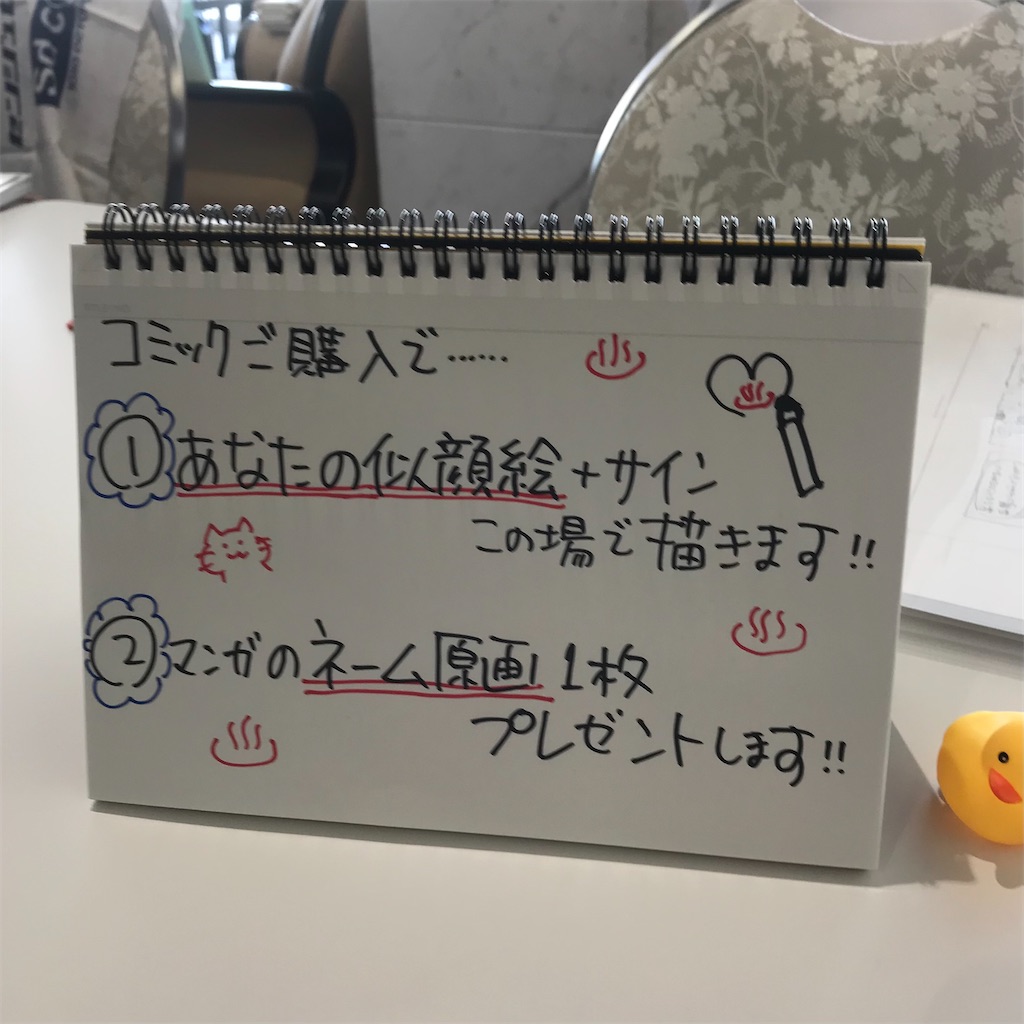 コミックご購入で……
① あなたの似顔絵+サイン
この場で描きます!!
② マンガのネーム原画1枚
プレゼントします!!